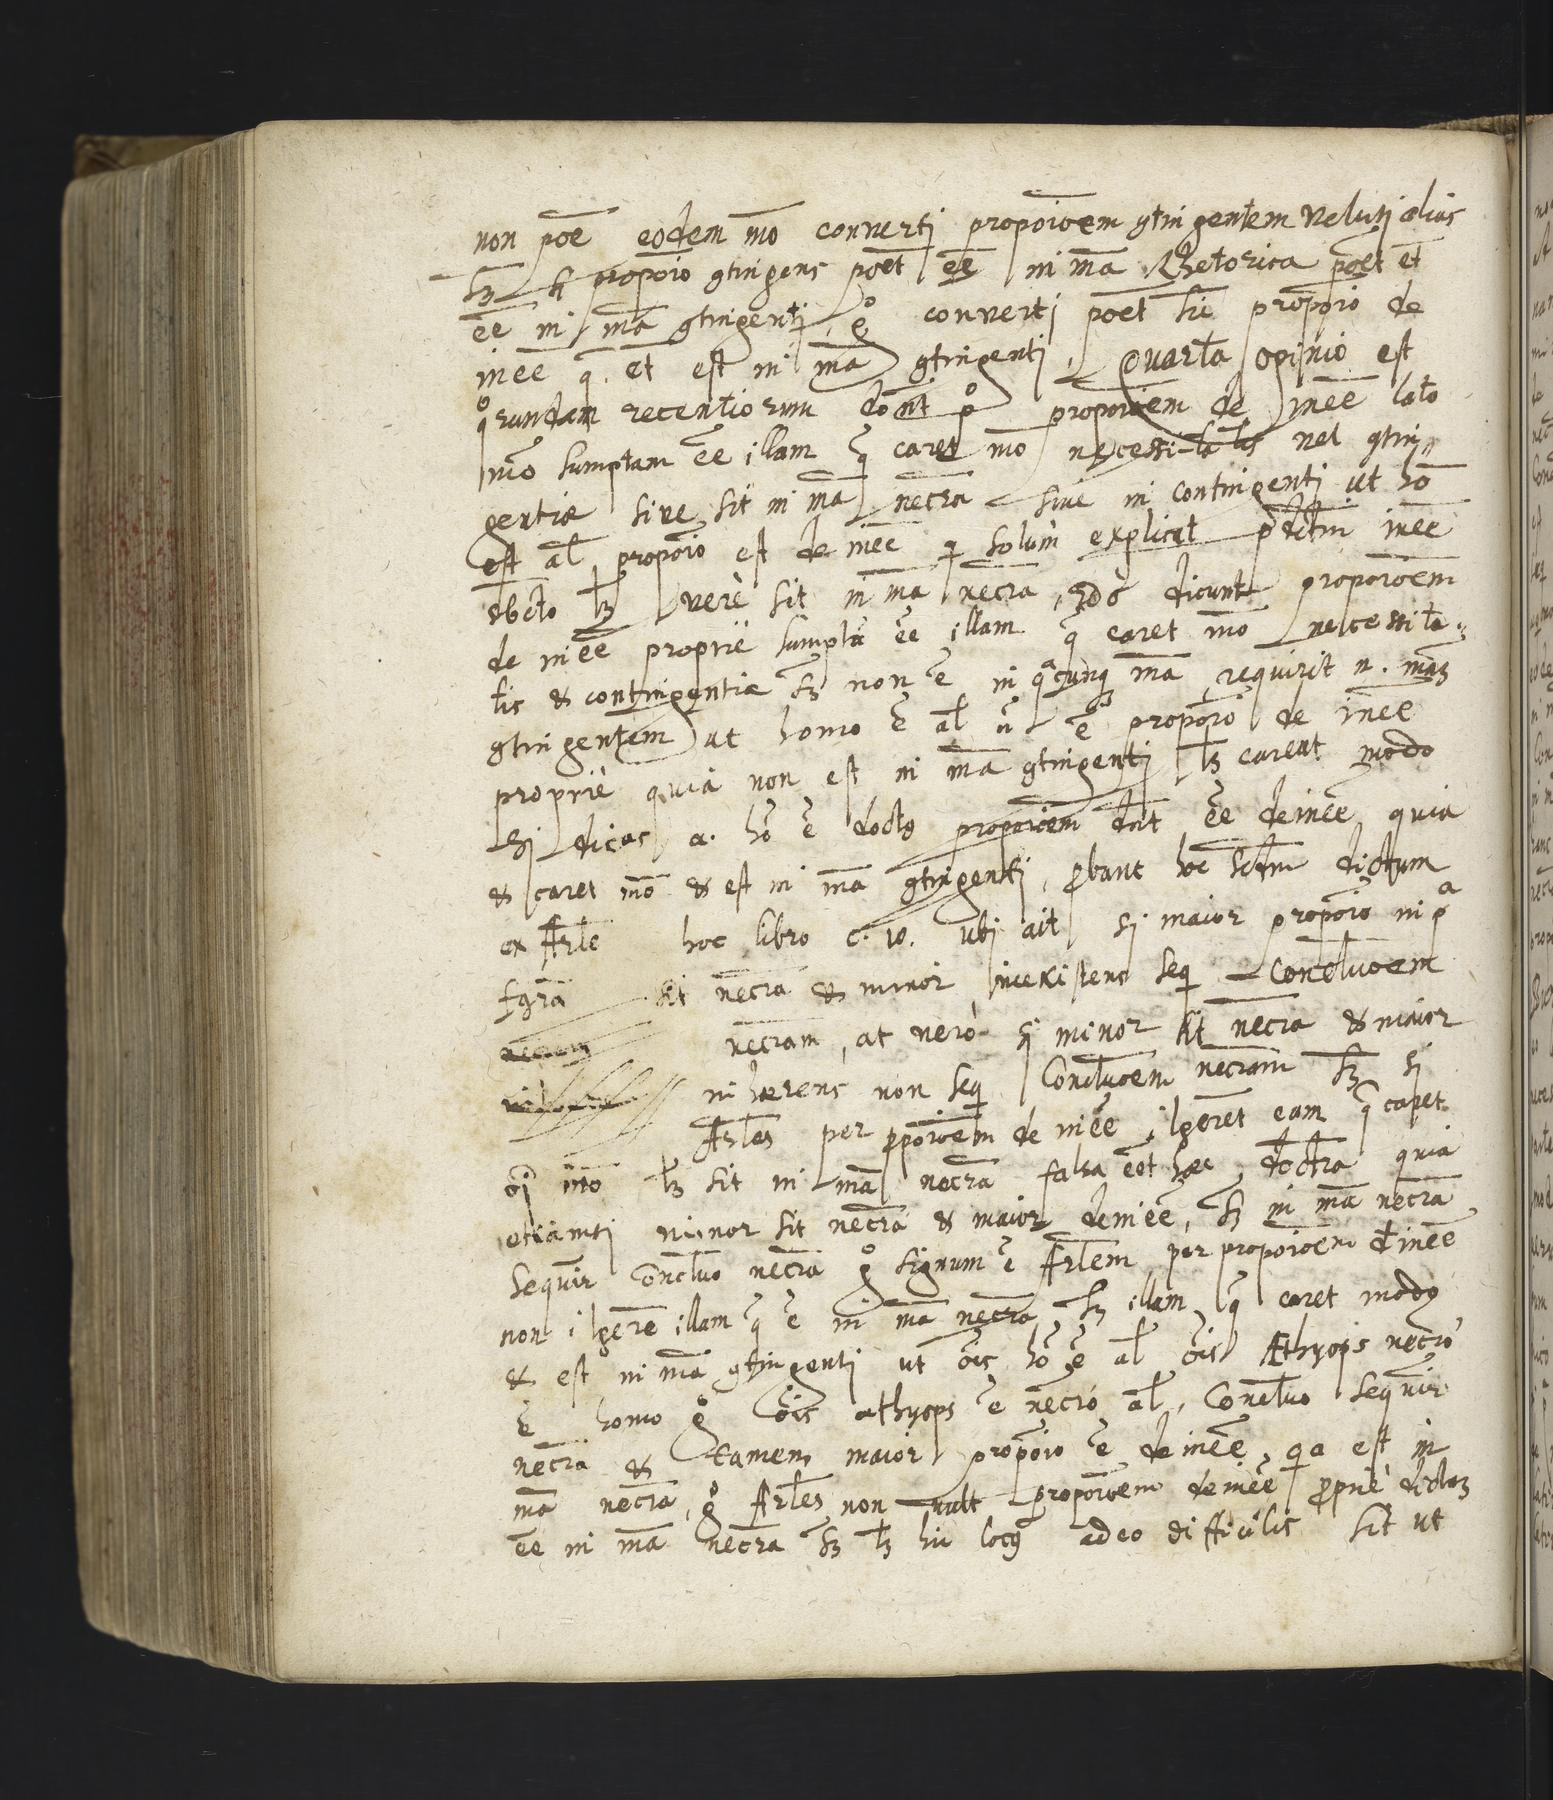 non põe eodem mõ converti propoĩoem ꝯtingentem veluti alias
sꝫ si propoĩo ꝯtingens põet eẽ in mã Rhetorica põet et
eẽ in mã ꝯtingenti, gͦ converti põet sic propoĩo de
ineẽ q. et est in mã ꝯtingenti. Quarta opinio est
qͦrundam recentiorum dõnt pͦ propoĩoem de ineẽ lato
mõ sumptam eẽ illam q̃ caret mõ necessitatis vel ꝯtin
gentiæ sive sit in mã necrã sive in contingenti ut hõ
est al̃ propoĩo est de ineẽ q solum explicat p̃dctm ineẽ
sbcto lꝫ vere sit in mã necrã, 2ͦ dicunt propoĩoem
de ineẽ proprie sumptã eẽ illam q̃ caret mõ necessita
tis & contingentiæ sꝫ non ẽ in qͣcunq mã requirit n. mãꝫ
ꝯtingentem ut homo ẽ al̃ ñ ẽ propoĩo de ineẽ
proprie quia non est in mã ꝯtingenti lꝫ careat modo
si dicas a. hõ ẽ doctꝯ propoĩoem dñt eẽ de ineẽ quia
& caret mõ & est in mã ꝯtingenti, ꝓbant hoc scdm dictum
ex Arle hoc libro c. 10. ubi ait si maior propoĩo in pͣ
fgrã sit necrã & minor inexistens seq conclũoem
necrãm, at vero si minor sit necrã & maior
inhærens non seq Conclũoem necrãm sꝫ si
Arles per ꝓpoĩoem de ineẽ ilgeret eam q̃ caret
oi mõ lꝫ sit in mã necrã falsa eẽt hæc doctrã quia
etiamsi minor sit necrã & maior de ineẽ, sꝫ in mã necrã
sequir Conclũo necrã gͦ signum ẽ Arlem per propoĩoem d ineẽ
non ilgere illam q̃ ẽ in mã necrã, sꝫ illam q̃ caret modo
& est in mã ꝯtingenti ut õis hõ ẽ al̃ õis Æthyops necrõ
ẽ homo gͦ õis æthyops ẽ necrõ al̃, Conclũo sequir
necrã & tamen maior propoĩo ẽ de ineẽ, qa est in
mã necrã, gͦ Arles non vult propoĩoem de ineẽ ꝓprie dictaꝫ
eẽ in mã necrã sꝫ lꝫ hic locꝯ adeo difficilis sit ut